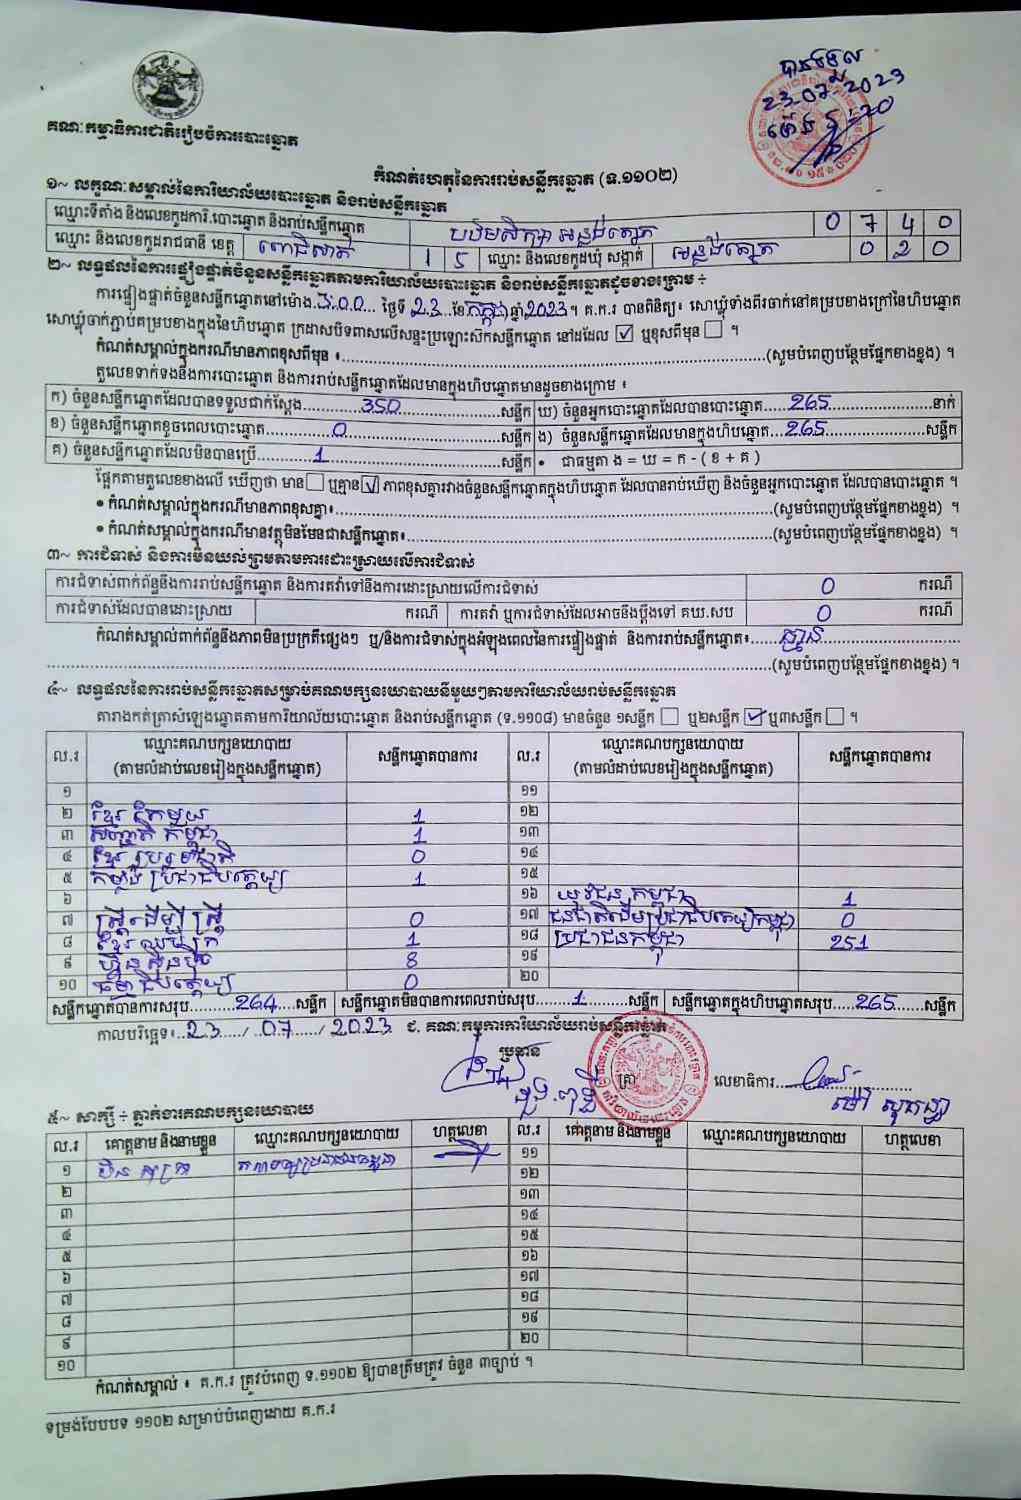 បានទទួល
23-07-2023
គណៈកម្មាធិការជាតិរៀបចំការបោះឆ្នោត
កំណត់ហេតុនៃការរាប់សន្លឹកឆ្នោត (ទ.១១០២)
១~ លក្ខណៈសម្គាល់នៃការិយាល័យបោះឆ្នោត និងរាប់សន្លឹកឆ្នោត
ឈ្មោះទីតាំង និងលេខកូដការិ.បោះឆ្នោត និងរាប់សន្លឹកឆ្នោត បឋមសិក្សា អន្លង់ត្នោត 0 7 4 0
ឈ្មោះ និងលេខកូដរាជធានី ខេត្ត ពោធិ៍សាត់ 1 5 ឈ្មោះ និងលេខកូដឃុំ សង្កាត់ អន្លង់ត្នោត 0 2 0
២~ លទ្ធផលនៃការផ្ទៀងផ្ទាត់ចំនួនសន្លឹកឆ្នោតតាមការិយាល័យបោះឆ្នោត និងរាប់សន្លឹកឆ្នោតដូចខាងក្រោម ÷
ការផ្ទៀងផ្ទាត់ចំនួនសន្លឹកឆ្នោតនៅម៉ោង 3:00 ថ្ងៃទី 23 ខែ កក្កដា ឆ្នាំ 2023 ។ គ.ក.រ បានពិនិត្យ៖ សោឃ្លុំទាំងពីរចាក់នៅគម្របខាងក្រៅនៃហិបឆ្នោត
សោឃ្លុំចាក់ភ្ជាប់គម្របខាងក្នុងនៃហិបឆ្នោត ក្រដាសបិទពាសលើសន្ទះប្រឡោះស៊កសន្លឹកឆ្នោត នៅដដែល ☑ ឬខុសពីមុន ☐ ។
កំណត់សម្គាល់ក្នុងករណីមានភាពខុសពីមុន ៖ (សូមបំពេញបន្ថែមផ្នែកខាងខ្នង) ។
តួលេខទាក់ទងនឹងការបោះឆ្នោត និងការរាប់សន្លឹកឆ្នោតដែលមានក្នុងហិបឆ្នោតមានដូចខាងក្រោម ៖
ក) ចំនួនសន្លឹកឆ្នោតដែលបានទទួលជាក់ស្តែង 350 សន្លឹក ឃ) ចំនួនអ្នកបោះឆ្នោតដែលបានបោះឆ្នោត 265 នាក់
ខ) ចំនួនសន្លឹកឆ្នោតខូចពេលបោះឆ្នោត 0 សន្លឹក ង) ចំនួនសន្លឹកឆ្នោតដែលមានក្នុងហិបឆ្នោត 265 សន្លឹក
គ) ចំនួនសន្លឹកឆ្នោតដែលមិនបានប្រើ 1 សន្លឹក • ជាធម្មតា ង = ឃ = ក - ( ខ + គ )
ផ្អែកតាមតួលេខខាងលើ ឃើញថា មាន ☐ ឬគ្មាន ☑ ភាពខុសគ្នារវាងចំនួនសន្លឹកឆ្នោតក្នុងហិបឆ្នោត ដែលបានរាប់ឃើញ និងចំនួនអ្នកបោះឆ្នោត ដែលបានបោះឆ្នោត ។
• កំណត់សម្គាល់ក្នុងករណីមានភាពខុសគ្នា៖ (សូមបំពេញបន្ថែមផ្នែកខាងខ្នង) ។
• កំណត់សម្គាល់ក្នុងករណីមានវត្ថុមិនមែនជាសន្លឹកឆ្នោត៖ (សូមបំពេញបន្ថែមផ្នែកខាងខ្នង) ។
៣~ ការជំទាស់ និងការមិនយល់ព្រមតាមការដោះស្រាយលើការជំទាស់
ការជំទាស់ពាក់ព័ន្ធនឹងការរាប់សន្លឹកឆ្នោត និងការតវ៉ាទៅនឹងការដោះស្រាយលើការជំទាស់ 0 ករណី
ការជំទាស់ដែលបានដោះស្រាយ ករណី ការតវ៉ា ឬការជំទាស់ដែលអាចនឹងប្តឹងទៅ គឃ.សប 0 ករណី
កំណត់សម្គាល់ពាក់ព័ន្ធនឹងភាពមិនប្រក្រតីផ្សេងៗ ឬ/និងការជំទាស់ក្នុងអំឡុងពេលនៃការផ្ទៀងផ្ទាត់ និងការរាប់សន្លឹកឆ្នោត៖ គ្មាន
(សូមបំពេញបន្ថែមផ្នែកខាងខ្នង) ។
៤~ លទ្ធផលនៃការរាប់សន្លឹកឆ្នោតសម្រាប់គណបក្សនយោបាយនីមួយៗតាមការិយាល័យរាប់សន្លឹកឆ្នោត
តារាងកត់ត្រាសំឡេងឆ្នោតតាមការិយាល័យបោះឆ្នោត និងរាប់សន្លឹកឆ្នោត (ទ.១១០៨) មានចំនួន ១សន្លឹក ☐ ឬ២សន្លឹក ☑ ឬ៣សន្លឹក ☐ ។
ល.រ ឈ្មោះគណបក្សនយោបាយ (តាមលំដាប់លេខរៀងក្នុងសន្លឹកឆ្នោត) សន្លឹកឆ្នោតបានការ ល.រ ឈ្មោះគណបក្សនយោបាយ (តាមលំដាប់លេខរៀងក្នុងសន្លឹកឆ្នោត) សន្លឹកឆ្នោតបានការ
១ ១១
២ ខ្មែរ រួតែមួយ 1 ១២
៣ សញ្ជាតិ កម្ពុជា 1 ១៣
៤ ខ្មែរ រួបរួមជាតិ 0 ១៤
៥ កម្លាំង ប្រជាធិបតេយ្យ 1 ១៥
៦ ១៦ យុវជន កម្ពុជា 1
៧ ស្ត្រី ដើម្បី ស្ត្រី 0 ១៧ ជនជាតិដើមប្រជាធិបតេយ្យកម្ពុជា 0
៨ ខ្មែរ ឈប់ក្រ 1 ១៨ ប្រជាជនកម្ពុជា 251
៩ ហ្វ៊ុនស៊ិនប៉ិច 8 ១៩
១០ ធម្មាធិបតេយ្យ 0 ២០
សន្លឹកឆ្នោតបានការសរុប 264 សន្លឹក សន្លឹកឆ្នោតមិនបានការពេលរាប់សរុប 1 សន្លឹក សន្លឹកឆ្នោតក្នុងហិបឆ្នោតសរុប 265 សន្លឹក
កាលបរិច្ឆេទ៖ 23 / 07 / 2023 ជ. គណៈកម្មការការិយាល័យរាប់សន្លឹកឆ្នោត
ប្រធាន
ត្រា លេខាធិការ
៥~ សាក្សី ÷ ភ្នាក់ងារគណបក្សនយោបាយ
ល.រ គោត្តនាម និងនាមខ្លួន ឈ្មោះគណបក្សនយោបាយ ហត្ថលេខា ល.រ គោត្តនាម និងនាមខ្លួន ឈ្មោះគណបក្សនយោបាយ ហត្ថលេខា
១ គណបក្សប្រជាជនកម្ពុជា ១១
២ ១២
៣ ១៣
៤ ១៤
៥ ១៥
៦ ១៦
៧ ១៧
៨ ១៨
៩ ១៩
១០ ២០
កំណត់សម្គាល់ ៖ គ.ក.រ ត្រូវបំពេញ ទ.១១០២ ឱ្យបានត្រឹមត្រូវ ចំនួន ៣ច្បាប់ ។
ទម្រង់បែបបទ ១១០២ សម្រាប់បំពេញដោយ គ.ក.រ